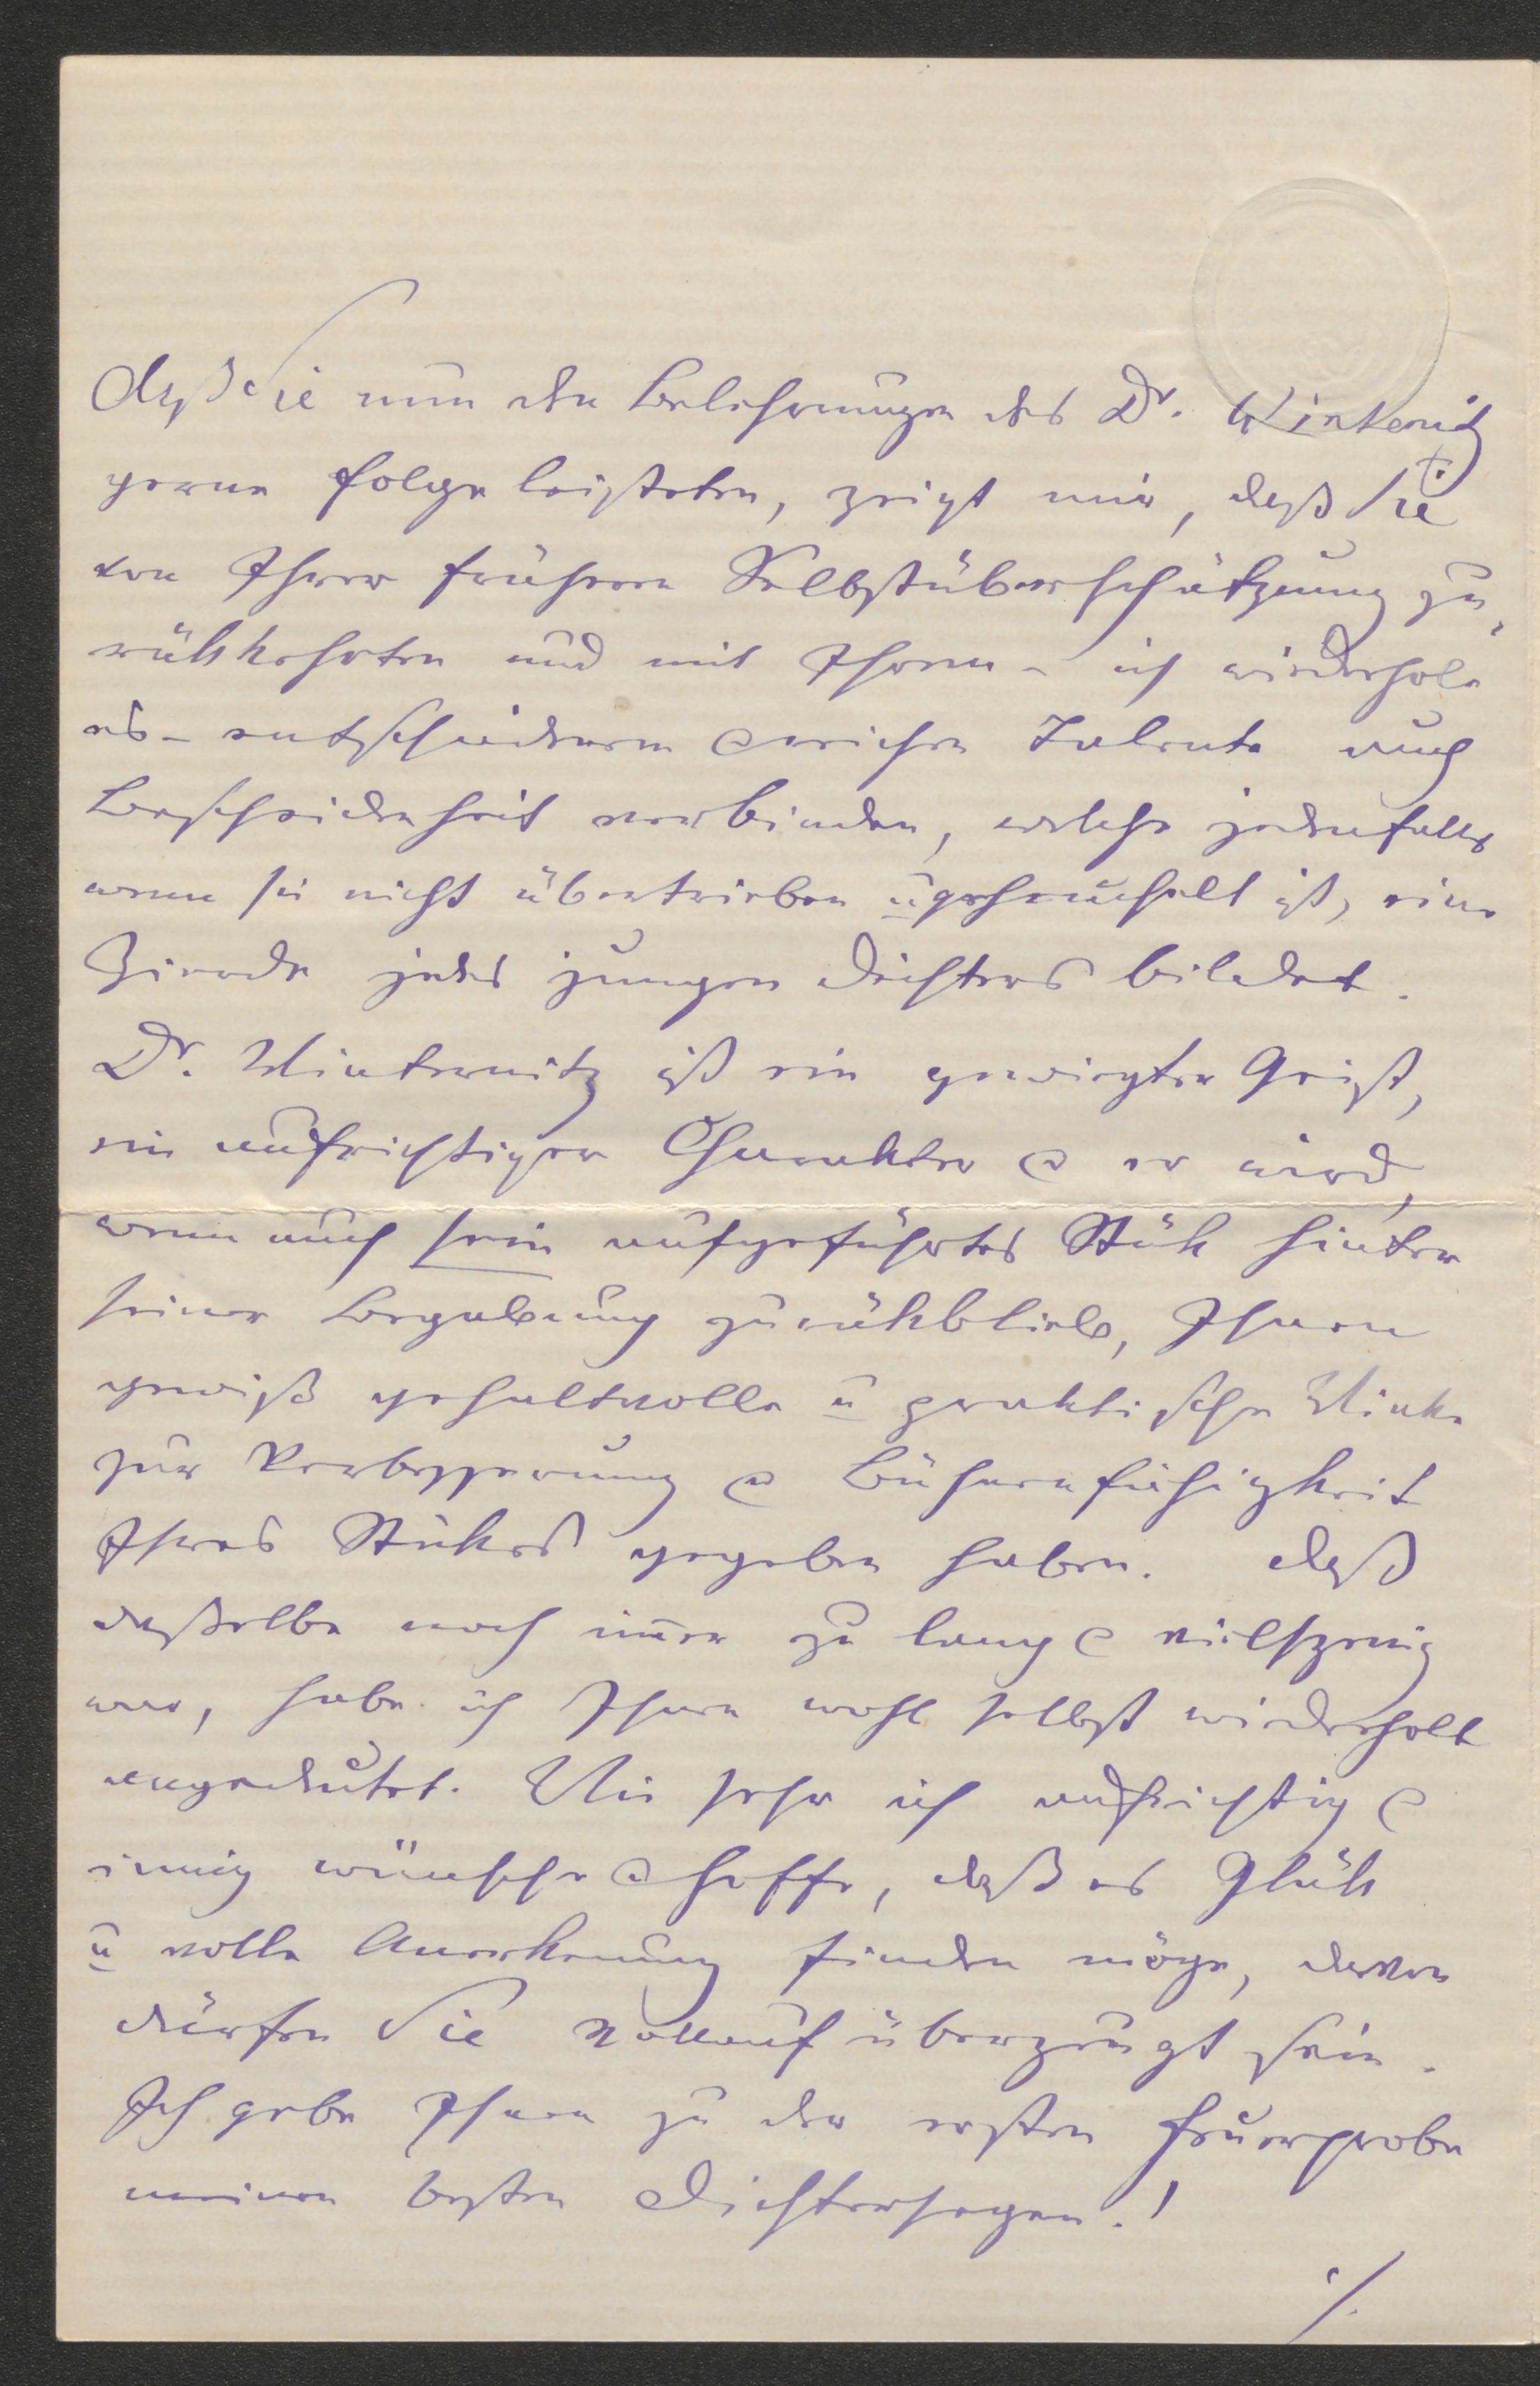 Daß Sie nun den Belehrungen des Dr. Winternitz
gerne Folge leisteten, zeigt mir, daß Sie
von Ihrer früheren Selbstüberschätzung zu-
rükkehrten und mit Ihrem – ich wiederhole
es – entschiedenen & reichen Talente auch
Bescheidenheit verbinden, welche jedenfalls
wenn sie nicht übertrieben u geheuchelt ist, eine
Zierde jedes jungen Dichters bildet.
Dr. Winternitz ist ein gewiegter Geist,
ein aufrichtiger Charakter & er wird,
wenn auch sein aufgeführtes Stük hinter
seiner Begabung zurükblieb, Ihnen
gewiß gehaltvolle u praktische Winke
zur Verbesserung & Bühnenfähigkeit
Ihres Stükes gegeben haben. Daß
dasselbe noch im̄er zu lang & vielszenig
war, habe ich Ihnen wohl selbst wiederholt
angedeutet. Wie sehr ich aufrichtig &
innig wünsche & hoffe, daß es Glük
u volle Anerkenung finden möge, davon
dürfen Sie vollauf überzeugt sein.
Ich gebe Ihnen zu der ersten Feuerprobe
meinen besten Dichtersegen.!
./.